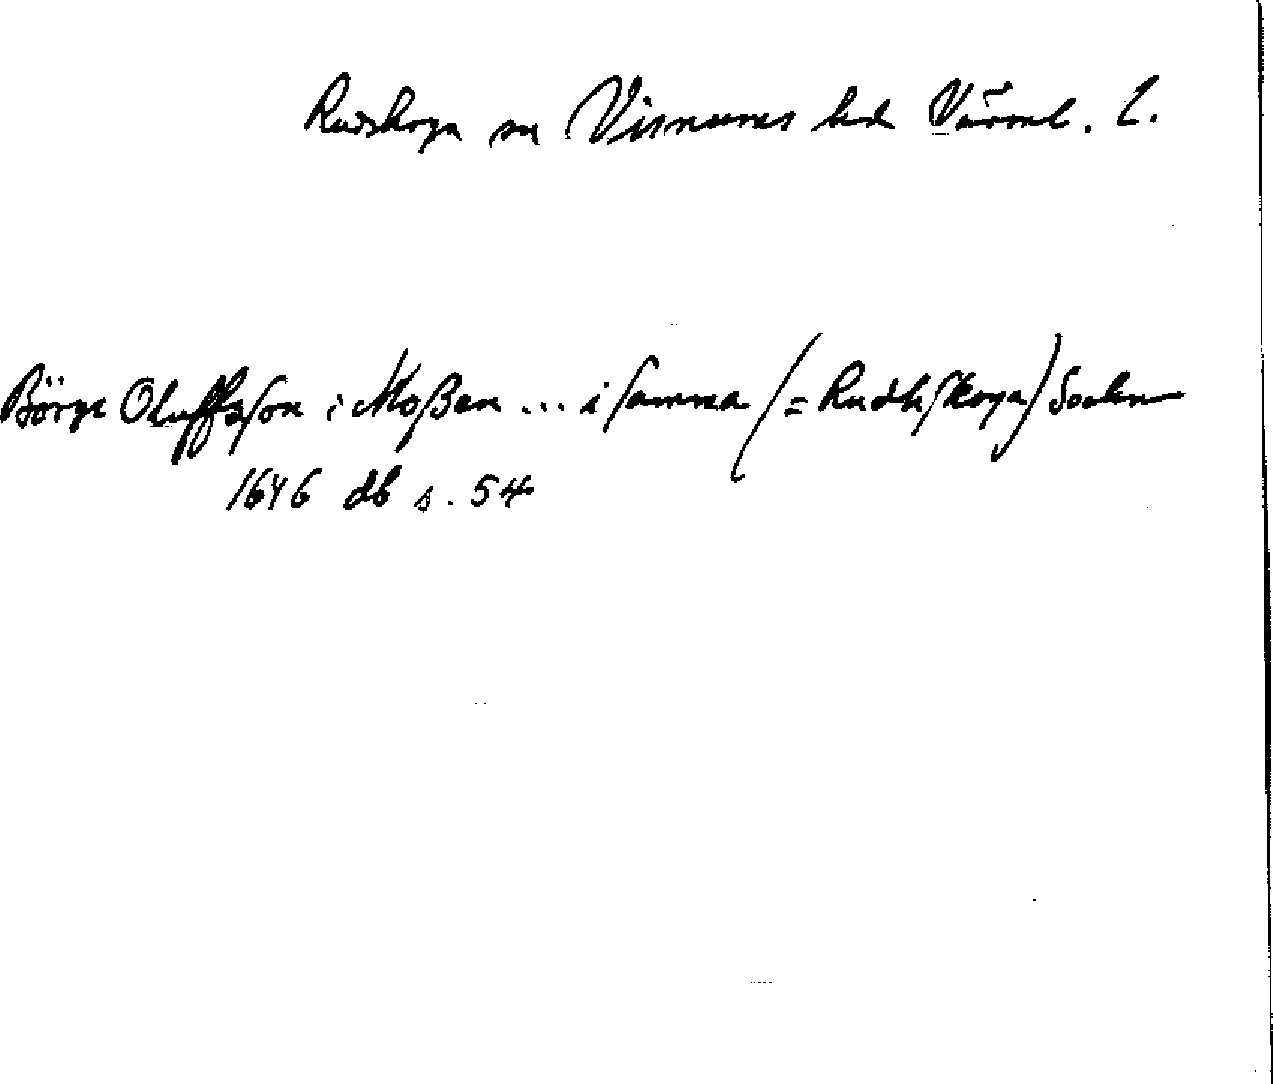 Rudskoga sn Visnums hd Värml. l.
Börge Oluffsson i Moßen ... i samma (= Rudhskoga) Sochn
1646 db s. 54